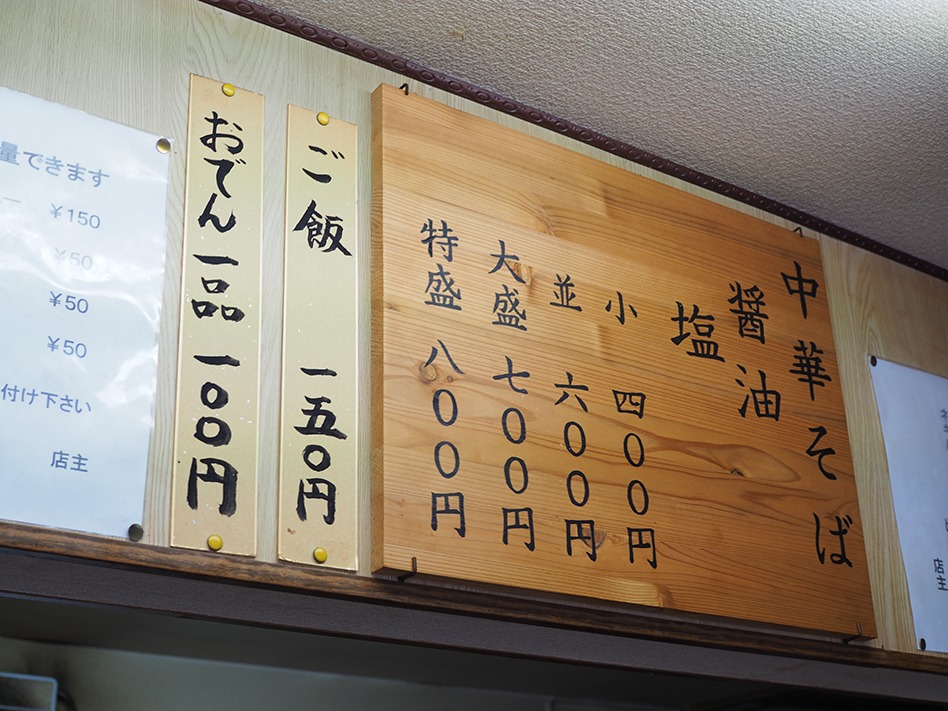 中華そば
醤油
塩
小 四〇〇円
並 六〇〇円
大盛 七〇〇円
特盛 八〇〇円
ご飯 一五〇円
おでん一品一〇〇円
量できます
¥150
¥50
¥50
¥50
付け下さい
店主
店主